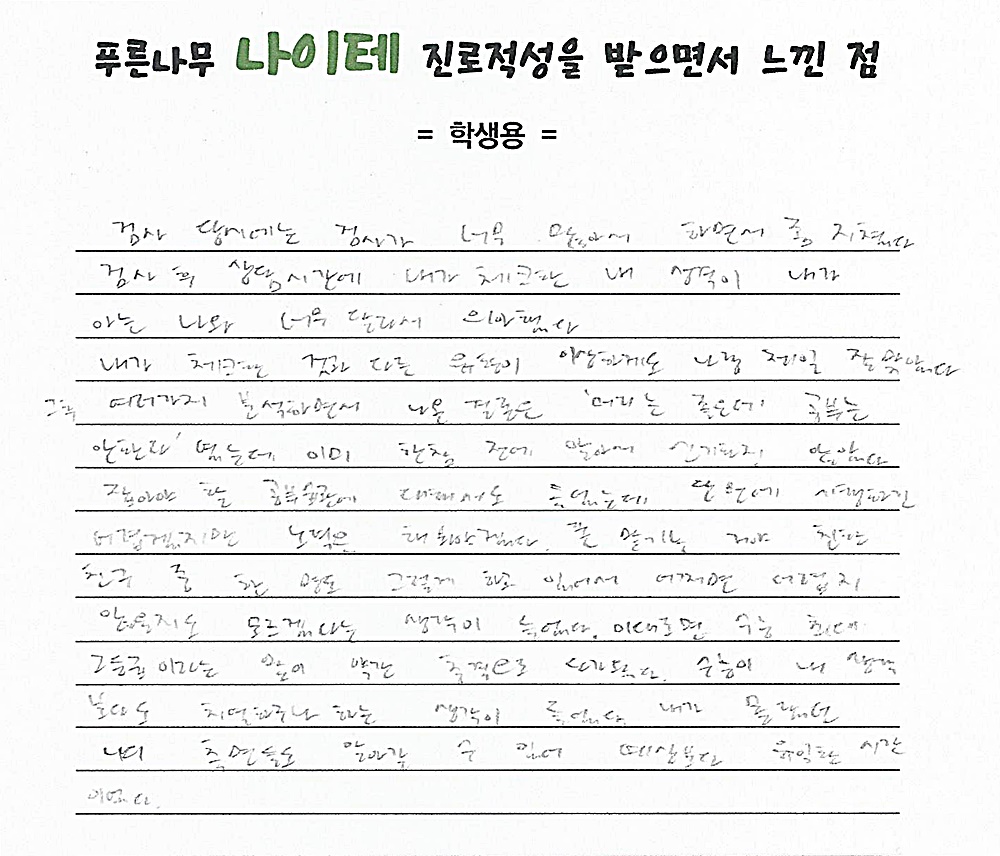 푸른나무 나이테 진로적성을 받으면서 느낀 점
= 학생용 =
검사 당시에는 검사가 너무 많아서 하면서 좀 지쳤다
검사 후 상담시간에 내가 체크한 내 성격이 내가
아는 나와 너무 달라서 의아했다
내가 체크한 것과 다른 유형이 이상하게도 나랑 제일 잘맞았다
그후 여러가지 분석하면서 나온 결론은 '머리는 좋은데 공부는
안한다' 였는데 이미 한참 전에 알아서 신기하진 않았다
잡아야 할 공부습관에 대해서도 들었는데 단번에 시행하긴
어렵겠지만 노력은 해봐야겠다. 폰 맡기는 거야 친한
친구 중 한 명도 그렇게 하고 있어서 어쩌면 어렵지
않을지도 모르겠다는 생각이 들었다. 이대로면 수능 최대
2등급이라는 말이 약간 충격으로 다가왔다. 수능이 내 생각
보다도 치열하구나 하는 생각이 들었다 내가 몰랐던
나의 측면들도 알아갈 수 있어 예상보다 유익한 시간
이었다.